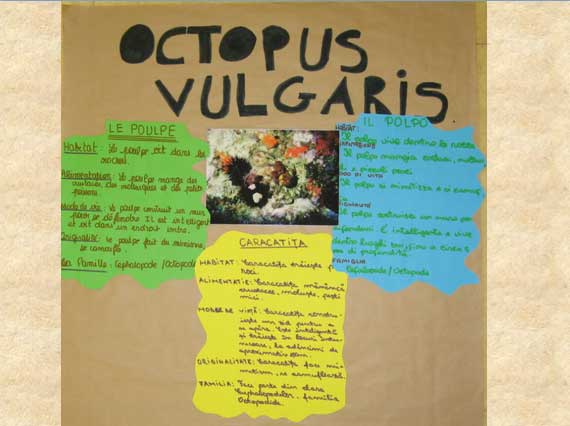 OCTOPUS
VULGARIS
LE POULPE
Habitat: Le poulpe vit dans les
rochers.
Alimentation: Le poulpe mange des
crustacés, des mollusques et des petits
poissons.
Mode de vie: Le poulpe construit un mur
pour se défendre. Il est intelligent
et vit dans un endroit
Originalité: Le poulpe fait du mimétisme,
se camoufle.
La Famille: Cephalopode/Octopode
IL POLPO
HABITAT:
Il polpo vive dentro la roccia
Il polpo mangia
e piccoli pesci
MODO DI VITA
Il polpo si mimetizza e si
Il polpo costruisce un muro per
difendersi. È intelligente e vive
dentro luoghi
di profondità.
FAMIGLIA
Cefalopode/Octopode
CARACATIȚA
HABITAT: Caracatița trăiește
roci.
ALIMENTATIE: Caracatița mănâncă
crustacee, moluște, pești
mici.
MODE DE VIAȚĂ: Caracatița constru-
iește un zid pentru a
se apăra. Este inteligentă
și trăiește în locuri întu-
necoase, la adâncimi de
aproximativ
ORIGINALITATE: Caracatița face mi-
metism, se camuflează.
FAMILIA: Face parte din clasa
Cephalopodelor, familia
Octopodida.